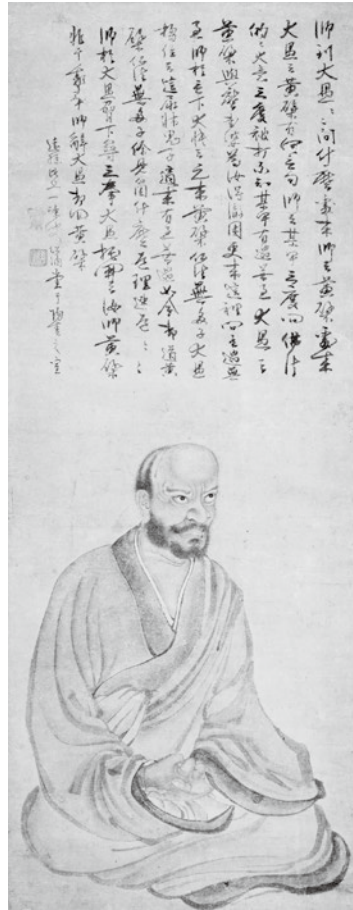 師到大愚〻問什麼處來師云黃檗處來
大愚云黃檗有何言句師云某甲三度問佛法
的〻大意三度被打不知某甲有過無過大愚云
黃檗與麼老婆為汝得徹困更來這裡問有過無
過師於言下大悟云元來黃檗佛法無多子大愚
搊住云這尿牀鬼子適來有過無過如今却道黃
檗佛法無多子你見箇什麼道理速道〻〻
師於大愚脅下築三拳大愚拓開云汝師黃檗
非干我事師辭大愚却回黃檗